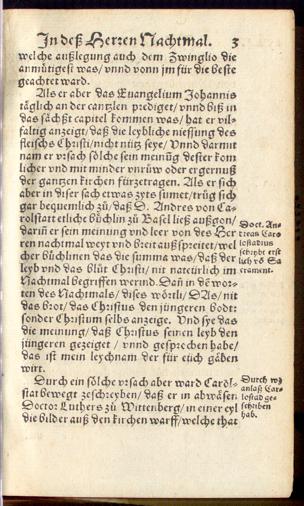 In deß Herren Nachtmal. 3
welche außlegung auch dem Zwinglio die
anmütigest was/ vnnd vonn jm für die beste
geachtet ward.
Als er aber das Euangelium Johannis
täglich an der cantzlen prediget/ vnnd biß in
das sächßt capitel kommen was/ hat er vil-
faltig anzeigt/ daß die leybliche niessung des
fleischs Christi/ nicht nütz seye/ Vnnd darmit
nam er vrsach sölche sein meinüg dester kom̃
licher vnd mit minder vnrüw oder ergernuß
der gantzen kirchen fürzetragen. Als er sich
aber in diser sach etwas zyts sumet/ trüg sich
gar bequemlich zů/ daß D. Andres von Ca-
rolstatt etliche büchlin zů Basel ließ außgon/
dariñ er sein meinung vnd leer von des Her
ren nachtmal weyt vnd breit außspreitet/ wel
cher büchlinen das die summa was/ daß der
leyb vnd das blůt Christi/ nit natürlich im
Nachtmal begriffen werind. Dañ in dẽ wor-
ten des Nachtmals/ dises wörtli/ DAs/ nit
das brot/ das Christus den jüngeren bodt:
sonder Christum selbs anzeige. Vnd sye das
die meinung/ daß Christus seinen leyb den
jüngeren gezeiget / vnnd gesprochen habe/
das ist mein leychnam der für euch gäben
wirt.
Durch ein sölche vrsach aber ward Caroł-
stat bewegt zeschreyben/ daß er in abwäsen
Doctor Luthers zů Wittenberg/ in einer eyl
die bilder auß den kirchen warff/ welche that
Doct. An-
dreas Caro
lostadius
schrybt erst
lich võ Sa
crament.
Durch wz
anlaß Car-
lostad ge-
schriben
hab.